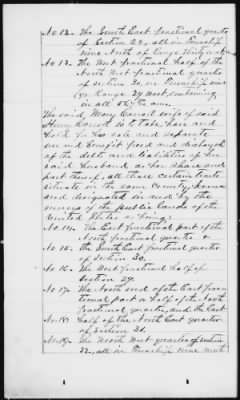 No 12. The South East fractional quarter
of Section 29, all in Township
nine North of Range Thirty
No 13. The West fractional half of the
North West fractional quarter
of section 30, in Township nine
Range 29 West containing
in all acres.
The said, Mary Connell wife of said
Henry Connell is to take, have and
hold for her sole and separate
use and benefit free and discharged
of the debts and liabilities of her
said husband as her share and
part thereof, all those certain tracts
situate in the same County, known
and designated in and by the
survey of the public Lands of the
United States as being:
No. 14. The East fractional part of the
North fractional quarter &
No 15. the South East fractional quarter
of section 30.
No 16. The West fractional half of
section 29.
No 17. The North end of the East frac-
tional part or half of the North
fractional quarter, and the East
No. 18. half of the North East quarter
of section 31.
No. 19. The North West quarter of section
32, all in Township nine north